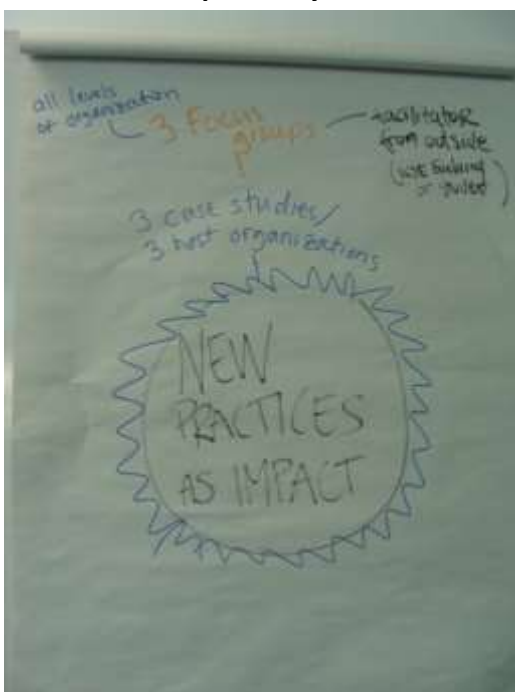 all levels
of organization
3 Focus
groups
facilitator
from outside
3 case studies/
3 host organizations
NEW
PRACTICES
AS IMPACT